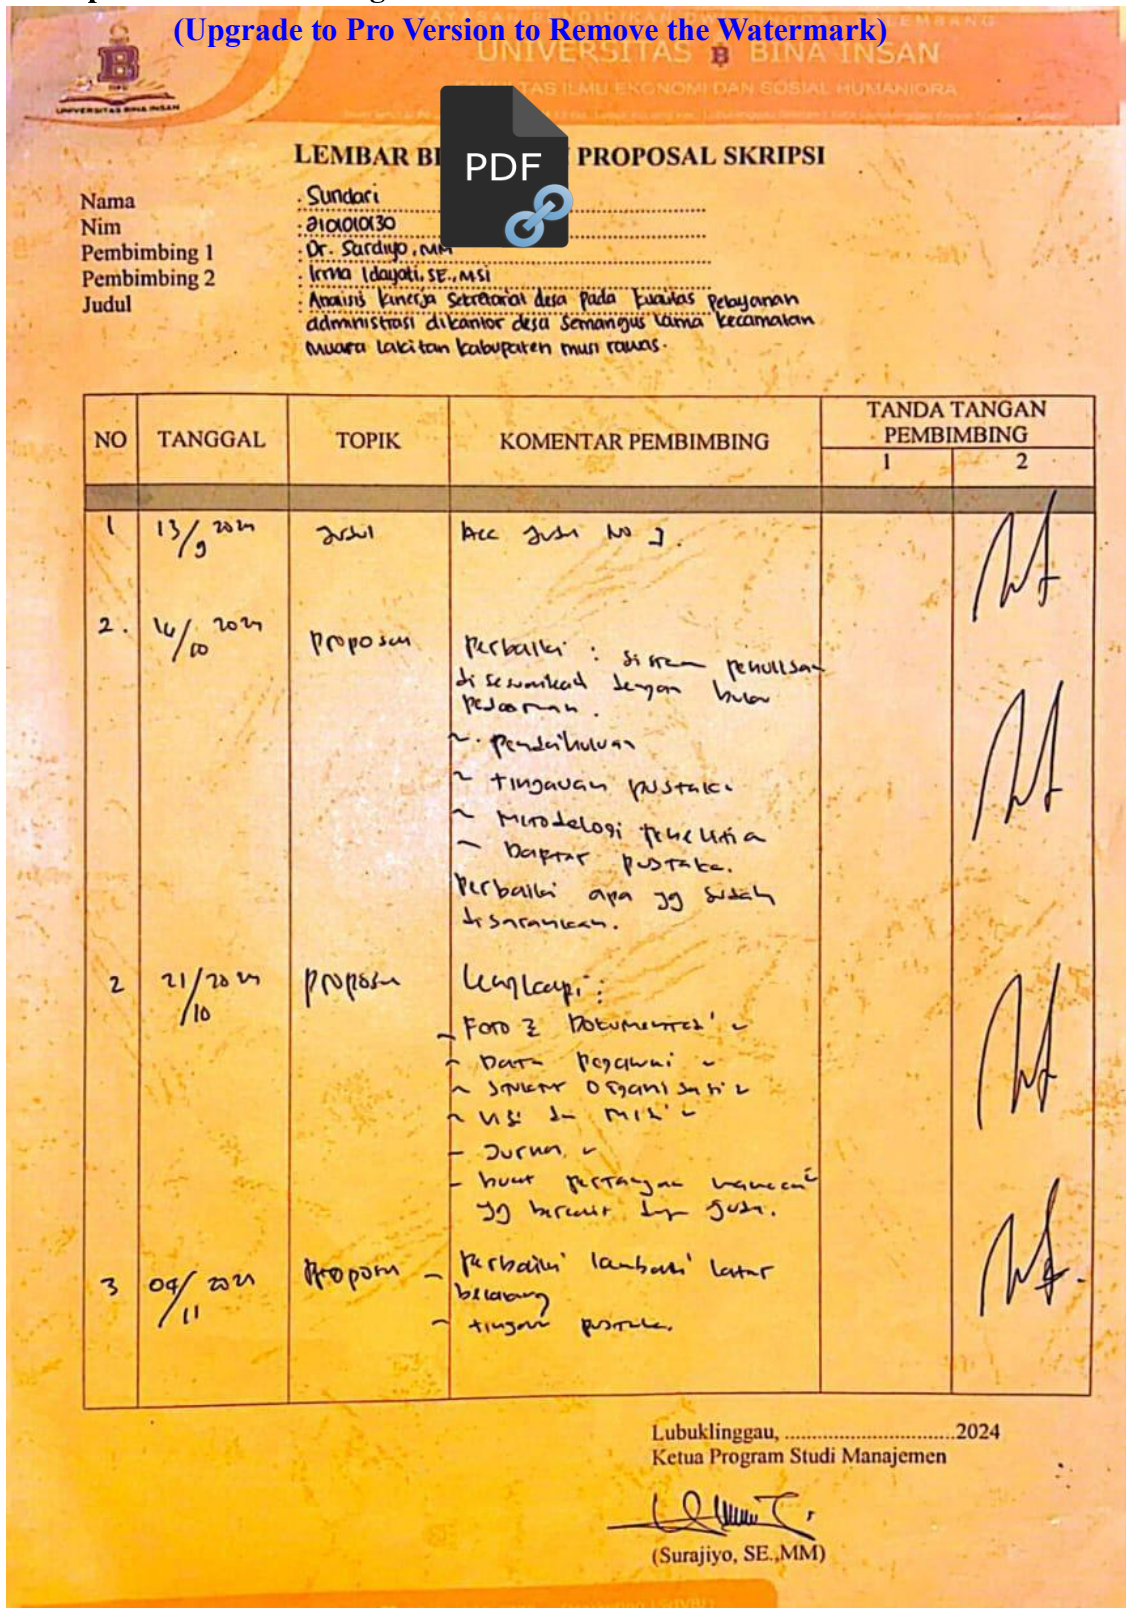 (Upgrade to Pro Version to Remove the Watermark)
UNIVERSITAS B BINA INSAN
FAKULTAS ILMU EKONOMI DAN SOSIAL HUMANIORA
UNIVERSITAS BINA INSAN
PDF
LEMBAR PROPOSAL SKRIPSI
Nama : Sundari
Nim : 2101010130
Pembimbing 1 : Dr. Sardiyo, MM
Pembimbing 2 : Irma Idayati, SE., MSi
Judul : Analisis kinerja Sekretariat desa pada kualitas pelayanan
administrasi dikantor desa Semangus lama kecamatan
Muara Lakitan kabupaten musi rawas.
NO TANGGAL TOPIK KOMENTAR PEMBIMBING TANDA TANGAN PEMBIMBING
1 2
1 13/9 2024 Judul Acc Judul No
2. 14/10 2024 Proposal Perbaiki : Sistem penulisan
disesuaikan dengan buku
pedoman.
~ pendahuluan
~ tinjauan pustaka
~ Metodelogi penelitia
~ Daftar pustaka.
Perbaiki apa yg sudah
disarankan.
2 21/10 2024 Proposal Lengkapi :
- Foto 2 Dokumentasi
- Data pegawai
~ Struktur Organisasi
~ Visi dan Misi
- Jurnal
- buat
yg dgn judul.
3 04/11 2024 Proposal - Perbaiki latar
belakang
- tinjauan pustaka.
Lubuklinggau, ...............................2024
Ketua Program Studi Manajemen
(Surajiyo, SE.,MM)